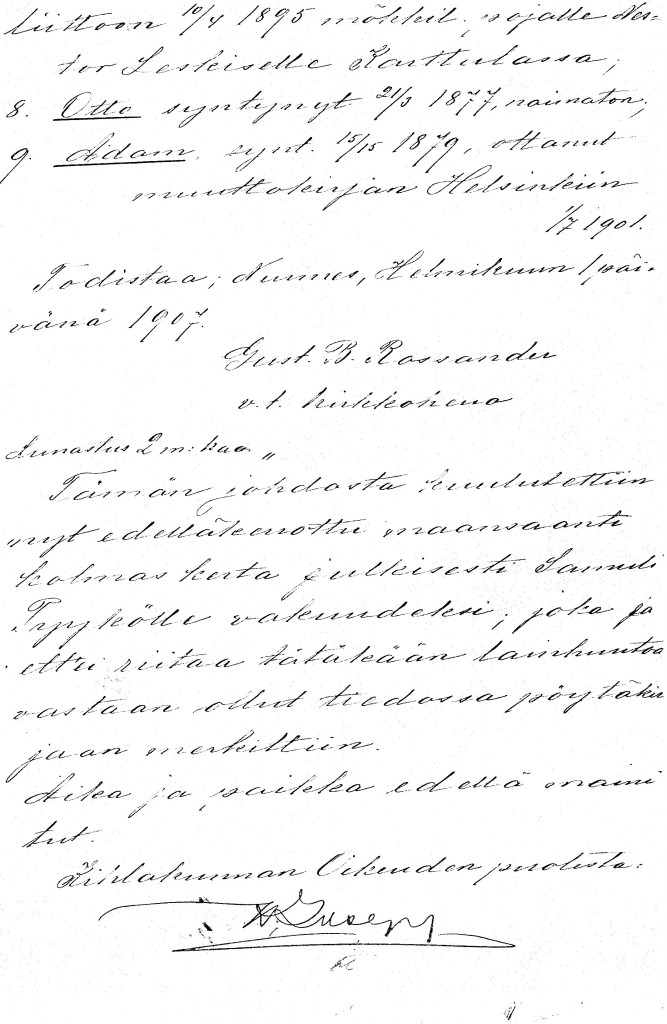 liittoon 10/4 1895 mökkil. pojalle Nes-
tor Leskiselle Karttulassa;
8. Otto syntynyt 21/3 1877, naimaton;
9. Adam, synt. 15/15 1879, ottanut
muuttokirjan Helsinkiin
1/7 1901.
Todistaa; Nurmes, Helmikuun 1 päi-
vänä 1907.
Gust. B. Rossander
v.t. kirkkoherra
Lunastus 2 m: kaa „
Tämän johdosta kuulutettiin
nyt edelläkerrottu maansaanti
kolmas kerta julkisesti Samuli
Typykölle vakuudeksi; joka ja
ett'ei riitaa tätäkään lainhuutoa
vastaan ollut tiedossa pöytäkir
jaan merkittiin.
Aika ja paikka edellä maini
tut.
Kihlakunnan Oikeuden puolesta: